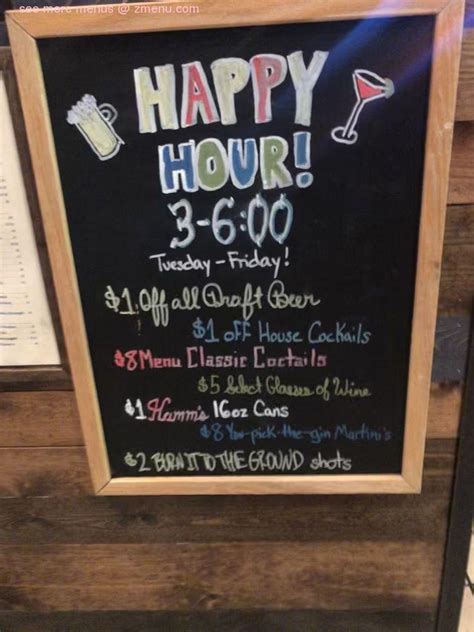 see more menus @ zmenu.com
HAPPY
HOUR!
3-6:00
Tuesday-Friday!
$1 Off all Draft Beer
$1 off House Cocktails
$8 Menu Classic Coctails
$5 Select Glasses of Wine
$1 Hamm's 16oz Cans
$8 You-pick-the-gin Martini's
$2 BURN IT TO THE GROUND shots